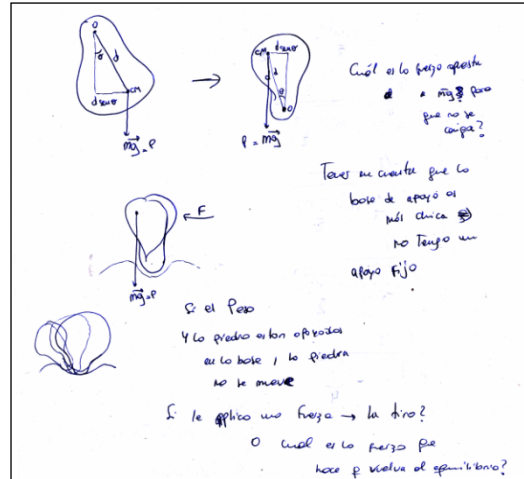 O
σ
d
CM
d senσ
mg = P
CM
d senσ
d
σ
O
P = mg
Cuál es la fuerza opuesta
a mg para
que no se
caiga?
Tener en cuenta que la
base de apoyo es
más chica
no tengo un
apoyo fijo
F
mg = P
Si el Peso
y la piedra estan apoyados
en la base, la piedra
no se mueve
Si le aplico una fuerza → la tiro?
O cual es la fuerza que
hace q vuelva al equilibrio?